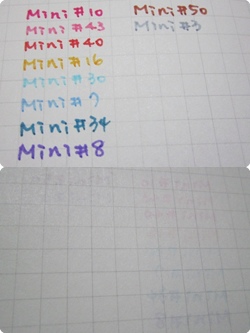 Mini#10
Mini#43
Mini#40
Mini#16
Mini#30
Mini#7
Mini#34
Mini#8
Mini#50
Mini#3